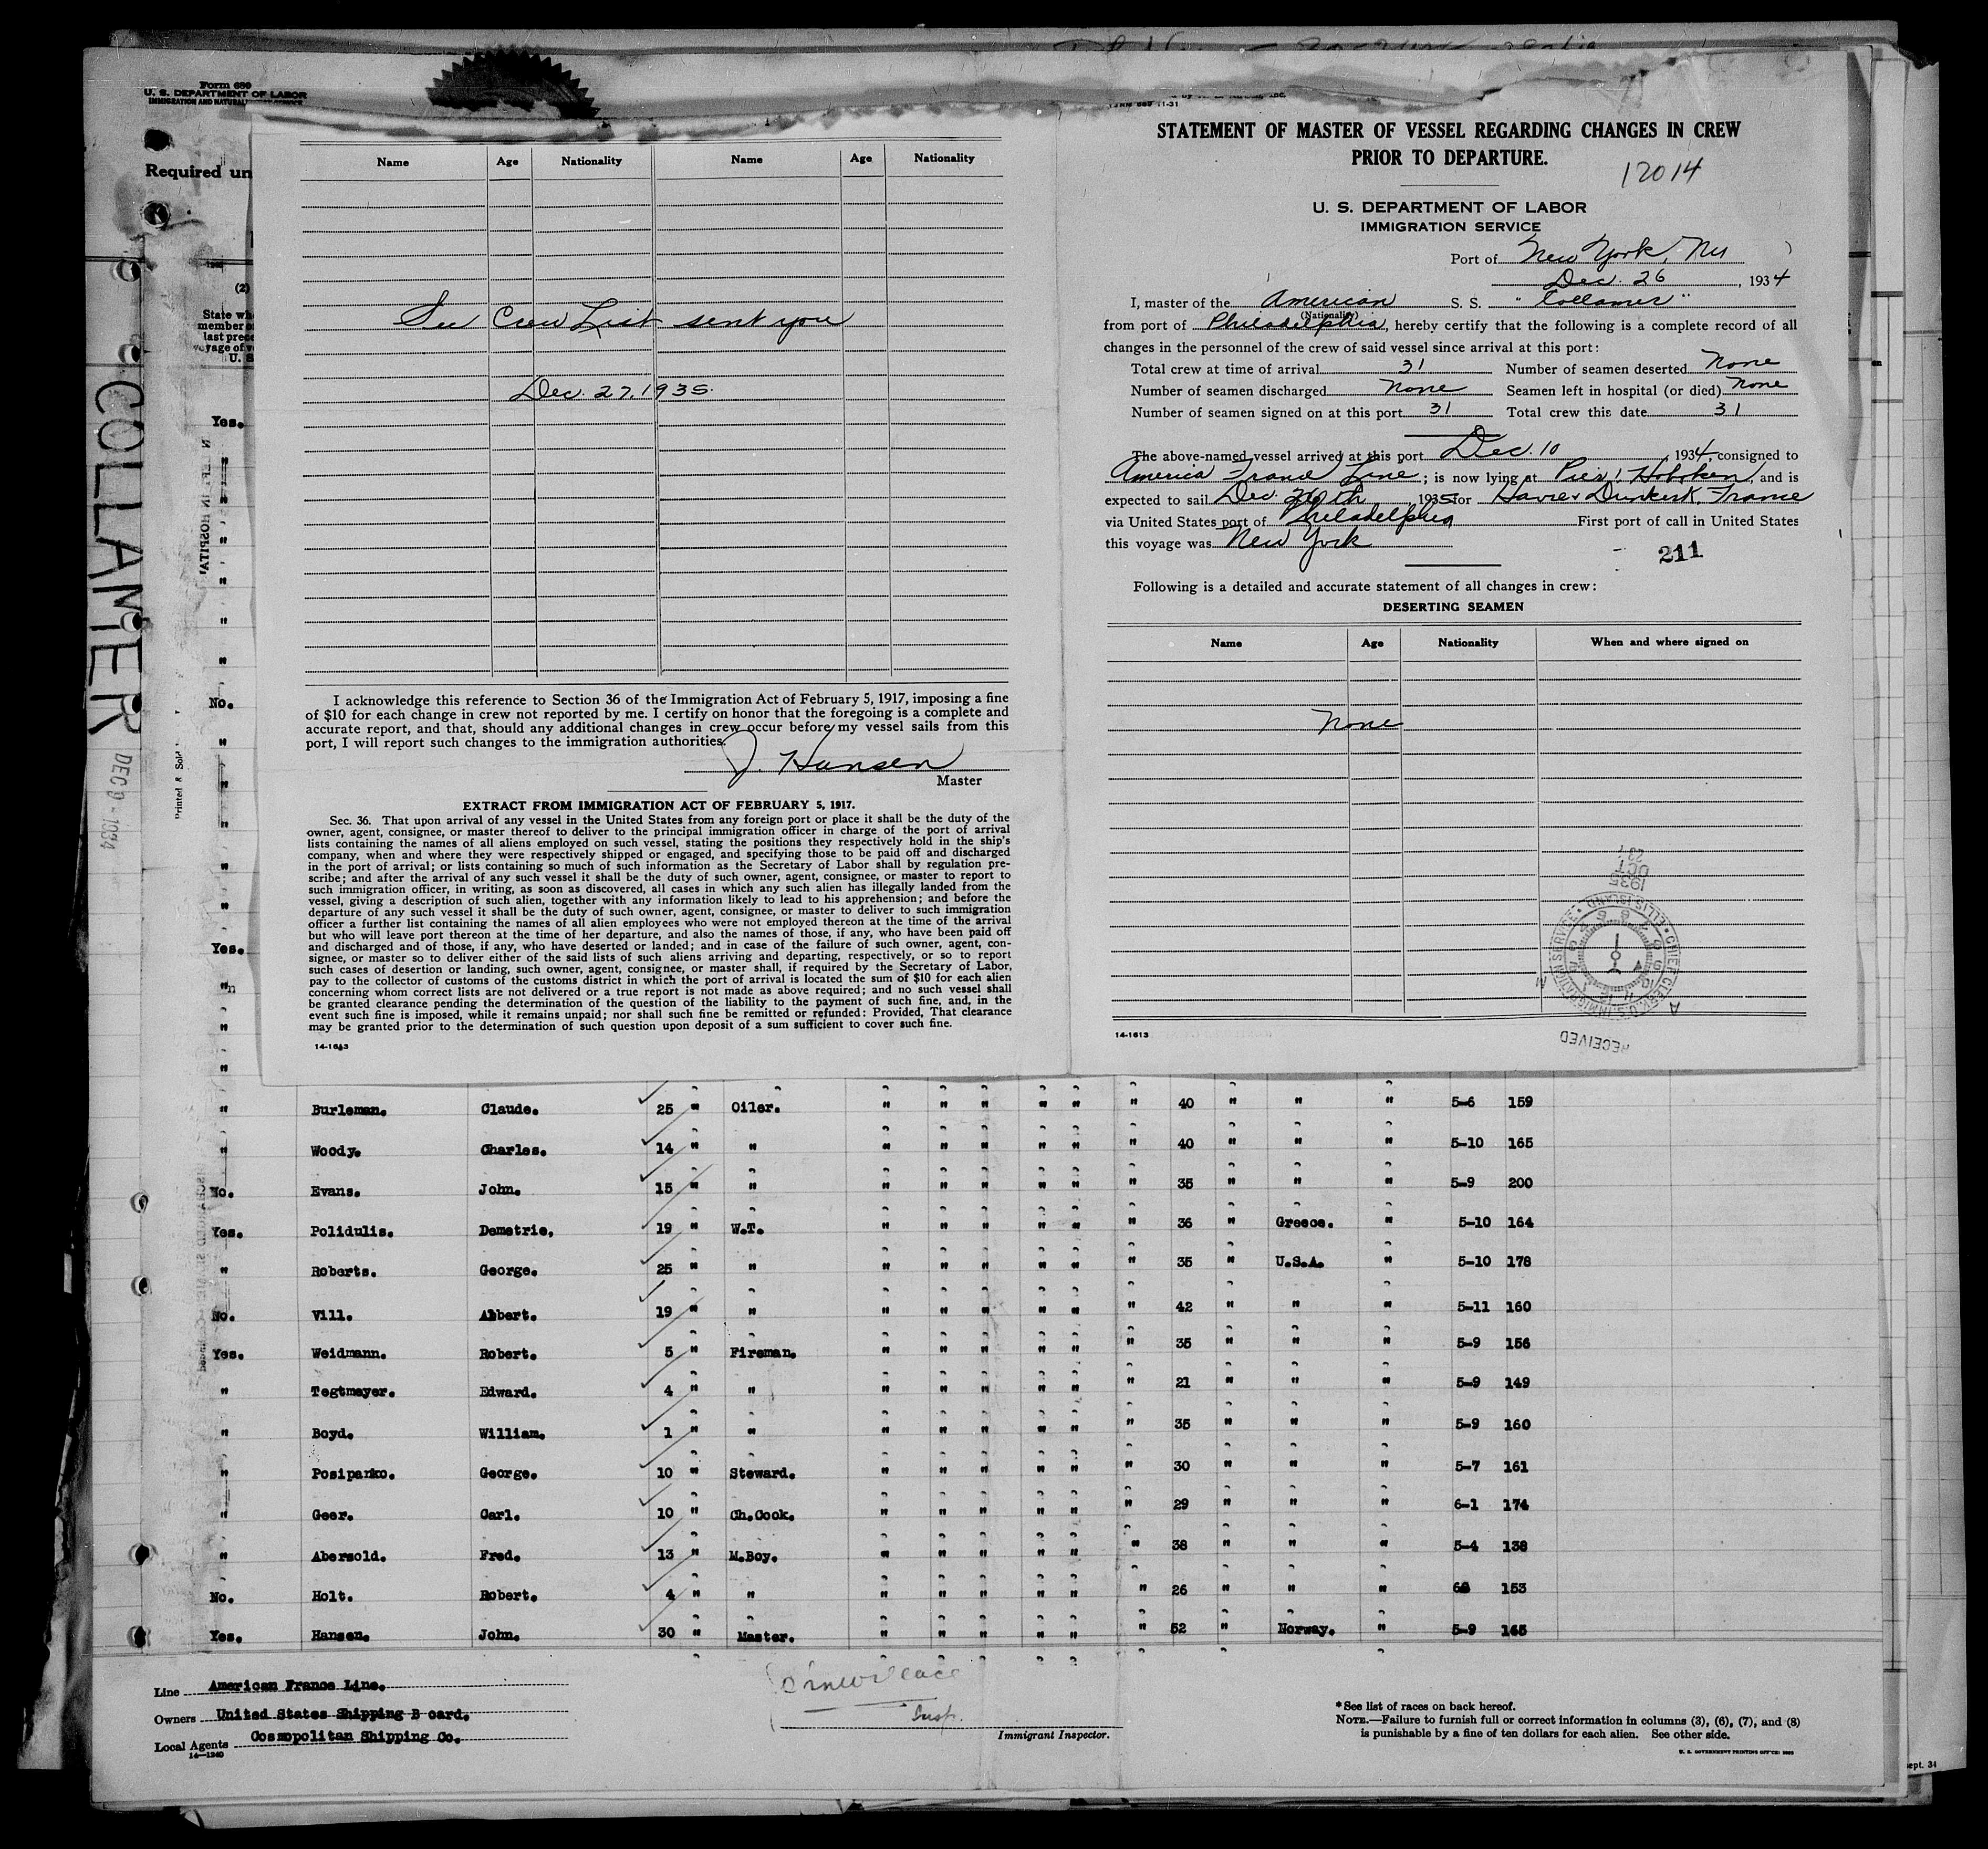 Form 689
U. S. DEPARTMENT OF LABOR
Required un
(2)
State wh
member o
last prece
voyage of v
U. S
COLLAMER
Name Age Nationality Name Age Nationality
See Crew List sent you
Dec. 27, 1935.
I acknowledge this reference to Section 36 of the Immigration Act of February 5, 1917, imposing a fine
of $10 for each change in crew not reported by me. I certify on honor that the foregoing is a complete and
accurate report, and that, should any additional changes in crew occur before my vessel sails from this
port, I will report such changes to the immigration authorities.
J. Hansen
Master
EXTRACT FROM IMMIGRATION ACT OF FEBRUARY 5, 1917.
Sec. 36. That upon arrival of any vessel in the United States from any foreign port or place it shall be the duty of the
owner, agent, consignee, or master thereof to deliver to the principal immigration officer in charge of the port of arrival
lists containing the names of all aliens employed on such vessel, stating the positions they respectively hold in the ship's
company, when and where they were respectively shipped or engaged, and specifying those to be paid off and discharged
in the port of arrival; or lists containing so much of such information as the Secretary of Labor shall by regulation pre-
scribe; and after the arrival of any such vessel it shall be the duty of such owner, agent, consignee, or master to report to
such immigration officer, in writing, as soon as discovered, all cases in which any such alien has illegally landed from the
vessel, giving a description of such alien, together with any information likely to lead to his apprehension; and before the
departure of any such vessel it shall be the duty of such owner, agent, consignee, or master to deliver to such immigration
officer a further list containing the names of all alien employees who were not employed thereon at the time of the arrival
but who will leave port thereon at the time of her departure, and also the names of those, if any, who have been paid off
and discharged and of those, if any, who have deserted or landed; and in case of the failure of such owner, agent, con-
signee, or master so to deliver either of the said lists of such aliens arriving and departing, respectively, or so to report
such cases of desertion or landing, such owner, agent, consignee, or master shall, if required by the Secretary of Labor,
pay to the collector of customs of the customs district in which the port of arrival is located the sum of $10 for each alien
concerning whom correct lists are not delivered or a true report is not made as above required; and no such vessel shall
be granted clearance pending the determination of the question of the liability to the payment of such fine, and, in the
event such fine is imposed, while it remains unpaid; nor shall such fine be remitted or refunded: Provided, That clearance
may be granted prior to the determination of such question upon deposit of a sum sufficient to cover such fine.
14-1613
STATEMENT OF MASTER OF VESSEL REGARDING CHANGES IN CREW
PRIOR TO DEPARTURE.
12014
U. S. DEPARTMENT OF LABOR
IMMIGRATION SERVICE
Port of New York, NY
Dec. 26, 1934
I, master of the American S. S. "Collamer"
(Nationality)
from port of Philadelphia, hereby certify that the following is a complete record of all
changes in the personnel of the crew of said vessel since arrival at this port:
Total crew at time of arrival 31 Number of seamen deserted None
Number of seamen discharged None Seamen left in hospital (or died) None
Number of seamen signed on at this port 31 Total crew this date 31
The above-named vessel arrived at this port Dec. 10, 1934, consigned to
America France Line; is now lying at Pier 1 Hoboken, and is
expected to sail Dec. 26th, 1935 for Havre & Dunkerk, France
via United States port of Philadelphia First port of call in United States
this voyage was New York
211
Following is a detailed and accurate statement of all changes in crew:
DESERTING SEAMEN
Name Age Nationality When and where signed on
None
1935
OCT
CHIEF CLERK U.S. IMMIGRATION SERVICE ELLIS ISLAND
RECEIVED
14-1613
Yes.
No.
Yes.
DEC 9 - 1934
" Burleman. Claude. 25 " Oiler. " " " " " " 40 " " " 5-6 159
" Woody. Charles. 14 " " " " " " " " 40 " " " 5-10 165
No. Evans. John. 15 " " " " " " " " 35 " " " 5-9 200
Yes. Polidulis. Demetrie. 19 " W.T. " " " " " " 36 " Greece. " 5-10 164
" Roberts. George. 25 " " " " " " " " 35 " U.S.A. " 5-10 178
No. Vill. Albert. 19 " " " " " " " " 42 " " " 5-11 160
Yes. Weidmann. Robert. 5 " Fireman. " " " " " " 35 " " " 5-9 156
" Tegtmeyer. Edward. 4 " " " " " " " " 21 " " " 5-9 149
" Boyd. William. 1 " " " " " " " " 35 " " " 5-9 160
" Posiparko. George. 10 " Steward. " " " " " " 30 " " " 5-7 161
" Geer. Carl. 10 " Ch.Cook. " " " " " " 29 " " " 6-1 174
" Abersold. Fred. 13 " M.Boy. " " " " " " 38 " " " 5-4 138
No. Holt. Robert. 4 " " " " " " " " 26 " " " 153
Yes. Hansen. John. 30 " Master. " " " " " " 52 " Norway. " 5-9 165
Line American France Line.
Owners United States Shipping B oard.
Local Agents Cosmopolitan Shipping Co.
14-1240
Insp.
Immigrant Inspector.
* See list of races on back hereof.
NOTE.—Failure to furnish full or correct information in columns (3), (6), (7), and (8)
is punishable by a fine of ten dollars for each alien. See other side.
Sept. 34